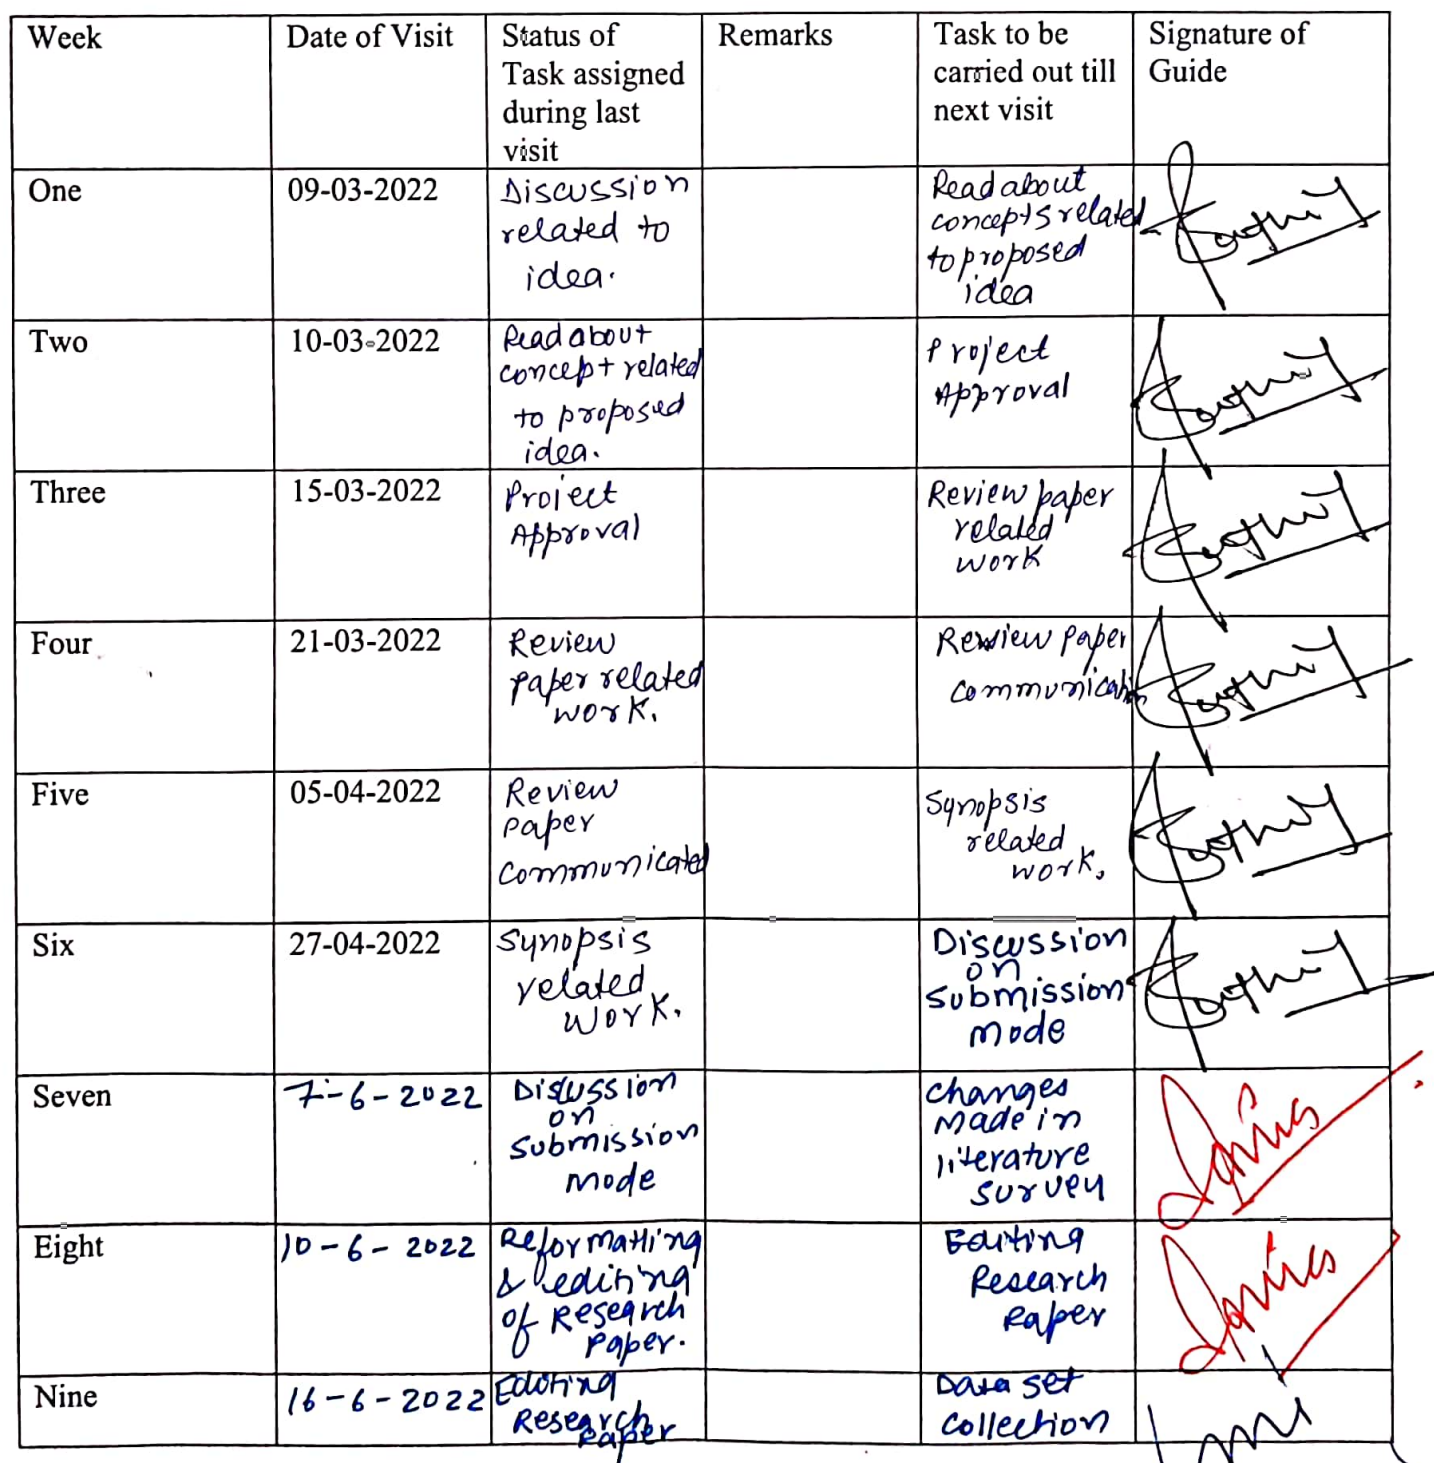 Week Date of Visit Status of Task assigned during last visit Remarks Task to be carried out till next visit Signature of Guide
One 09-03-2022 Discussion related to idea. Read about concepts related to proposed idea
Two 10-03-2022 Read about concept related to proposed idea. Project Approval
Three 15-03-2022 Project Approval Review paper related work
Four 21-03-2022 Review paper related work. Review paper communication
Five 05-04-2022 Review paper communicated Synopsis related work.
Six 27-04-2022 Synopsis related work. Discussion on submission mode
Seven 7-6-2022 Discussion on submission mode changes made in literature survey
Eight 10-6-2022 Reformatting & editing of Research Paper. Editing Research Paper
Nine 16-6-2022 Editing Research Paper Data set collection